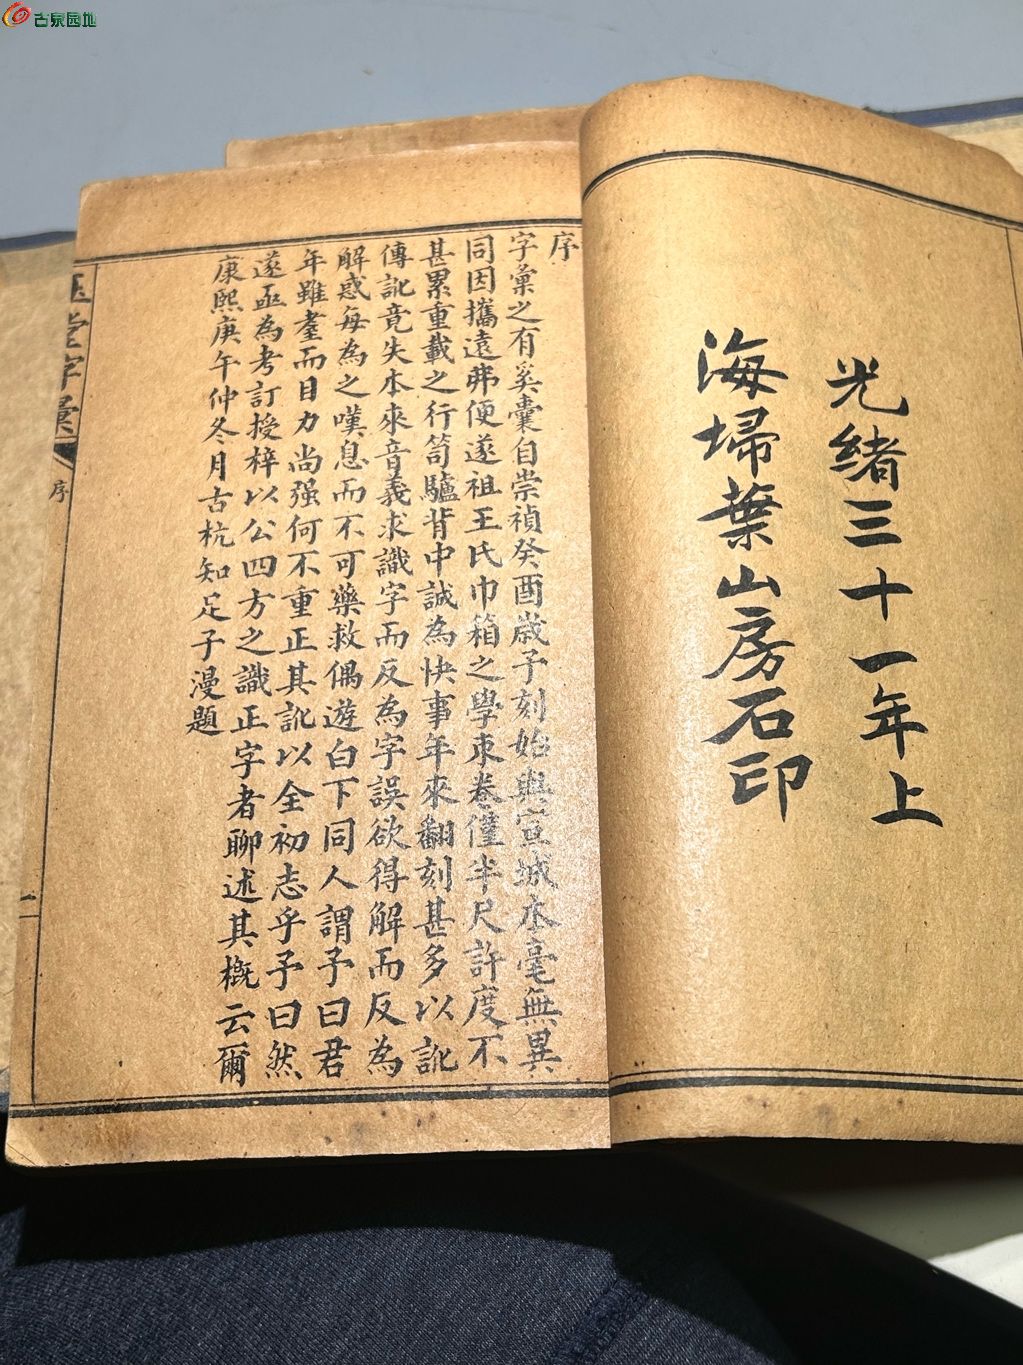 古泉园地
光緒三十一年上
海埽葉山房石印
序
字彙之有奚囊自崇禎癸酉歲予刻始與宣城本毫無異
同因攜遠弗便遂祖王氏巾箱之學束卷僅半尺許度不
甚累重載之行笥驢背中誠為快事年來翻刻甚多以訛
傳訛竟失本來音義求識字而反為字誤欲得解而反為
解惑每為之嘆息而不可藥救偶遊白下同人謂予曰君
年雖耋而目力尚强何不重正其訛以全初志乎予曰然
遂亟為考訂授梓以公四方之識正字者聊述其概云爾
康熙庚午仲冬月古杭知足子漫題
玉堂字彙
序
一